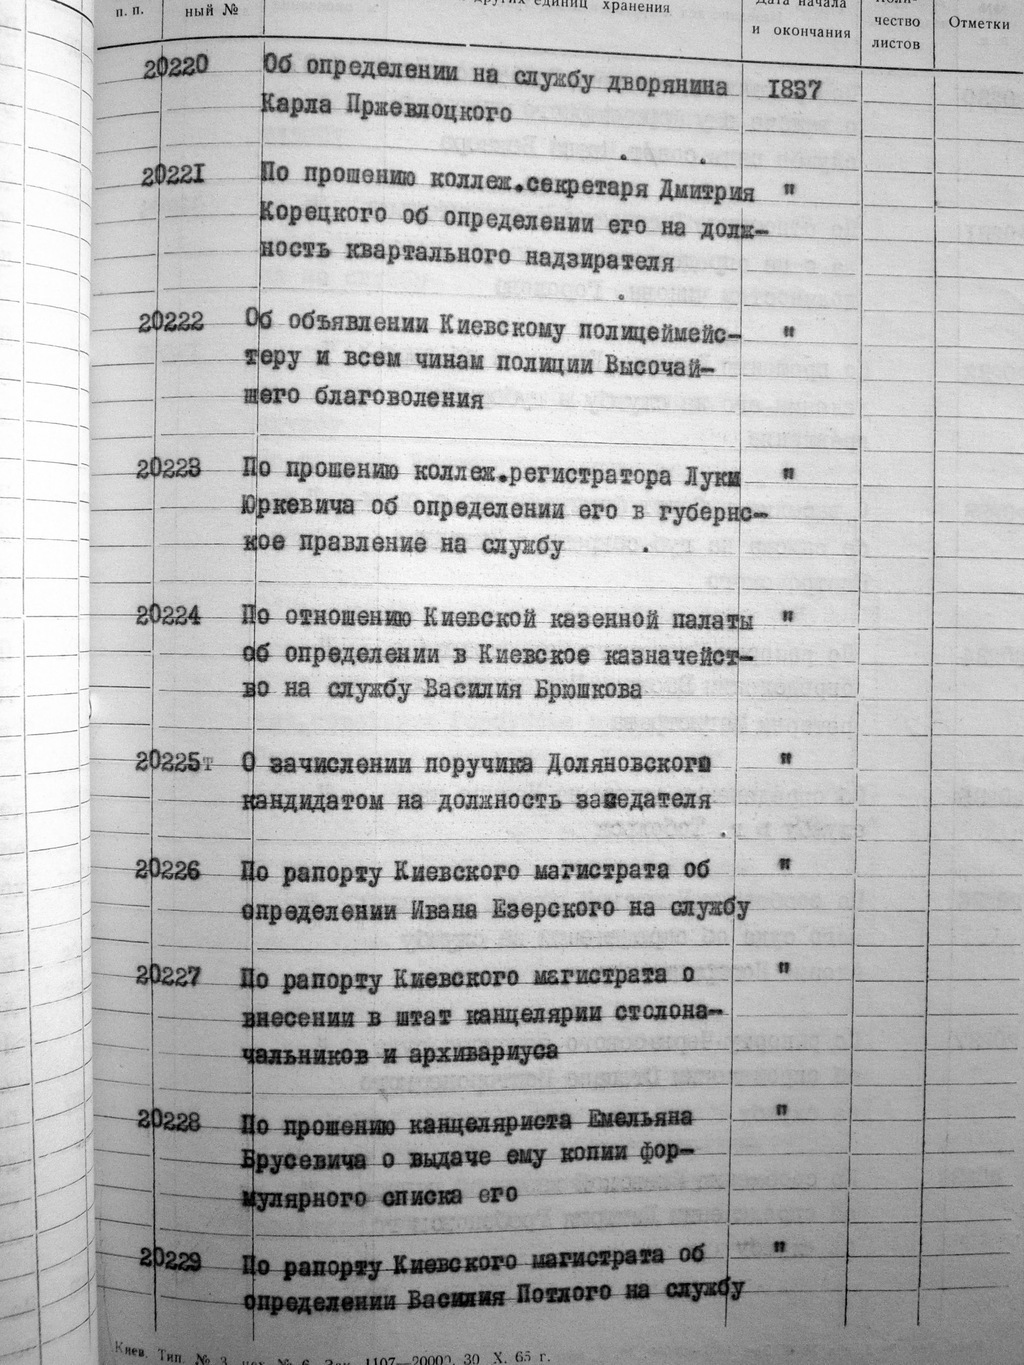 п. п.
ный №
других единиц хранения
Дата начала
и окончания
чество
листов
Отметки
20220 Об определении на службу дворянина 1837
Карла Пржевлоцкого
20221 По прошению коллеж.секретаря Дмитрия "
Корецкого об определении его на долж-
ность квартального надзирателя
20222 Об объявлении Киевскому полицеймейс- "
теру и всем чинам полиции Высочай-
шего благоволения
20223 По прошению коллеж.регистратора Луки "
Юркевича об определении его в губернс-
кое правление на службу
20224 По отношению Киевской казенной палаты "
об определении в Киевское казначейст-
во на службу Василия Брюшкова
20225т О зачислении поручика Доляновского "
кандидатом на должность заседателя
20226 По рапорту Киевского магистрата об "
определении Ивана Езерского на службу
20227 По рапорту Киевского магистрата о "
внесении в штат канцелярии столона-
чальников и архивариуса
20228 По прошению канцеляриста Емельяна "
Брусевича о выдаче ему копии фор-
мулярного списка его
20229 По рапорту Киевского магистрата об "
определении Василия Потлого на службу
Киев. Тип. № 3, цех № 6. Зак. 1107—20000. 30 X. 65 г.